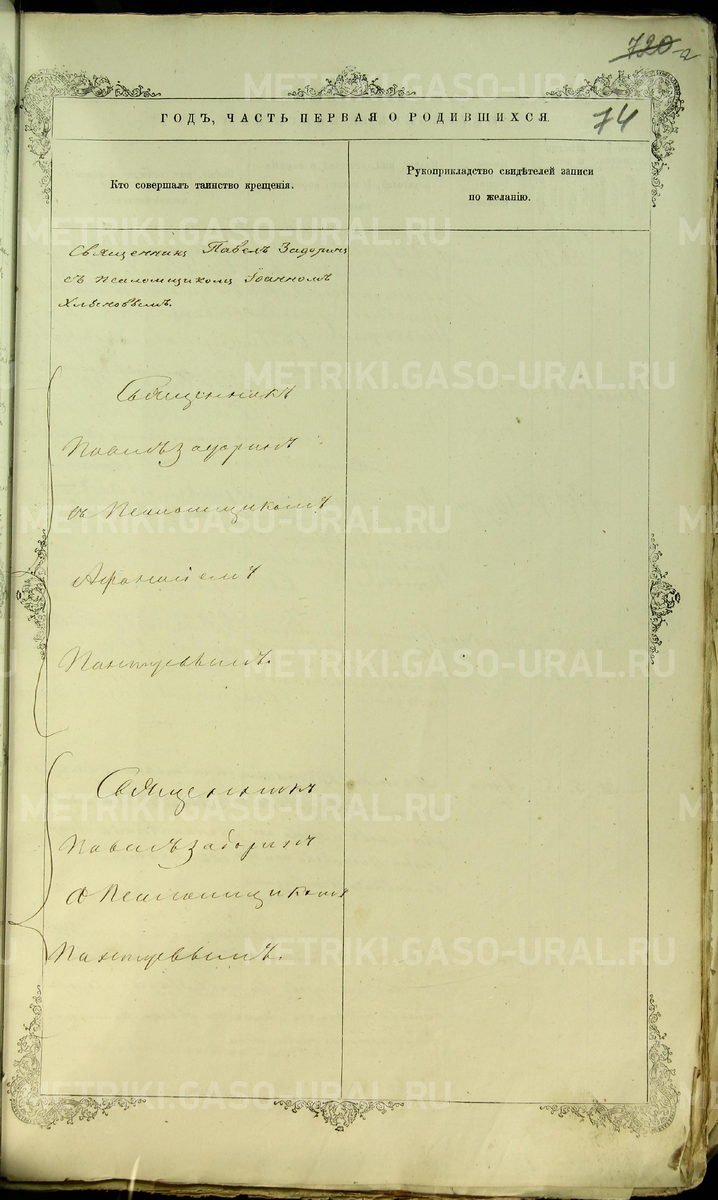 720-а
74
ГОДЪ, ЧАСТЬ ПЕРВАЯ О РОДИВШИХСЯ.
Кто совершалъ таинство крещенія.
Рукоприкладство свидѣтелей записи
по желанію.
Священникъ Павелъ Задоринъ
съ псаломщикомъ Іоанномъ
Хлѣновымъ.
Священникъ
Павелъ Задоринъ
съ Псаломщикомъ
Афанасіемъ
Пантуевымъ.
Священникъ
Павелъ Задоринъ
с Псаломщикомъ
Пантуевымъ.
METRIKI.GASO-URAL.RU